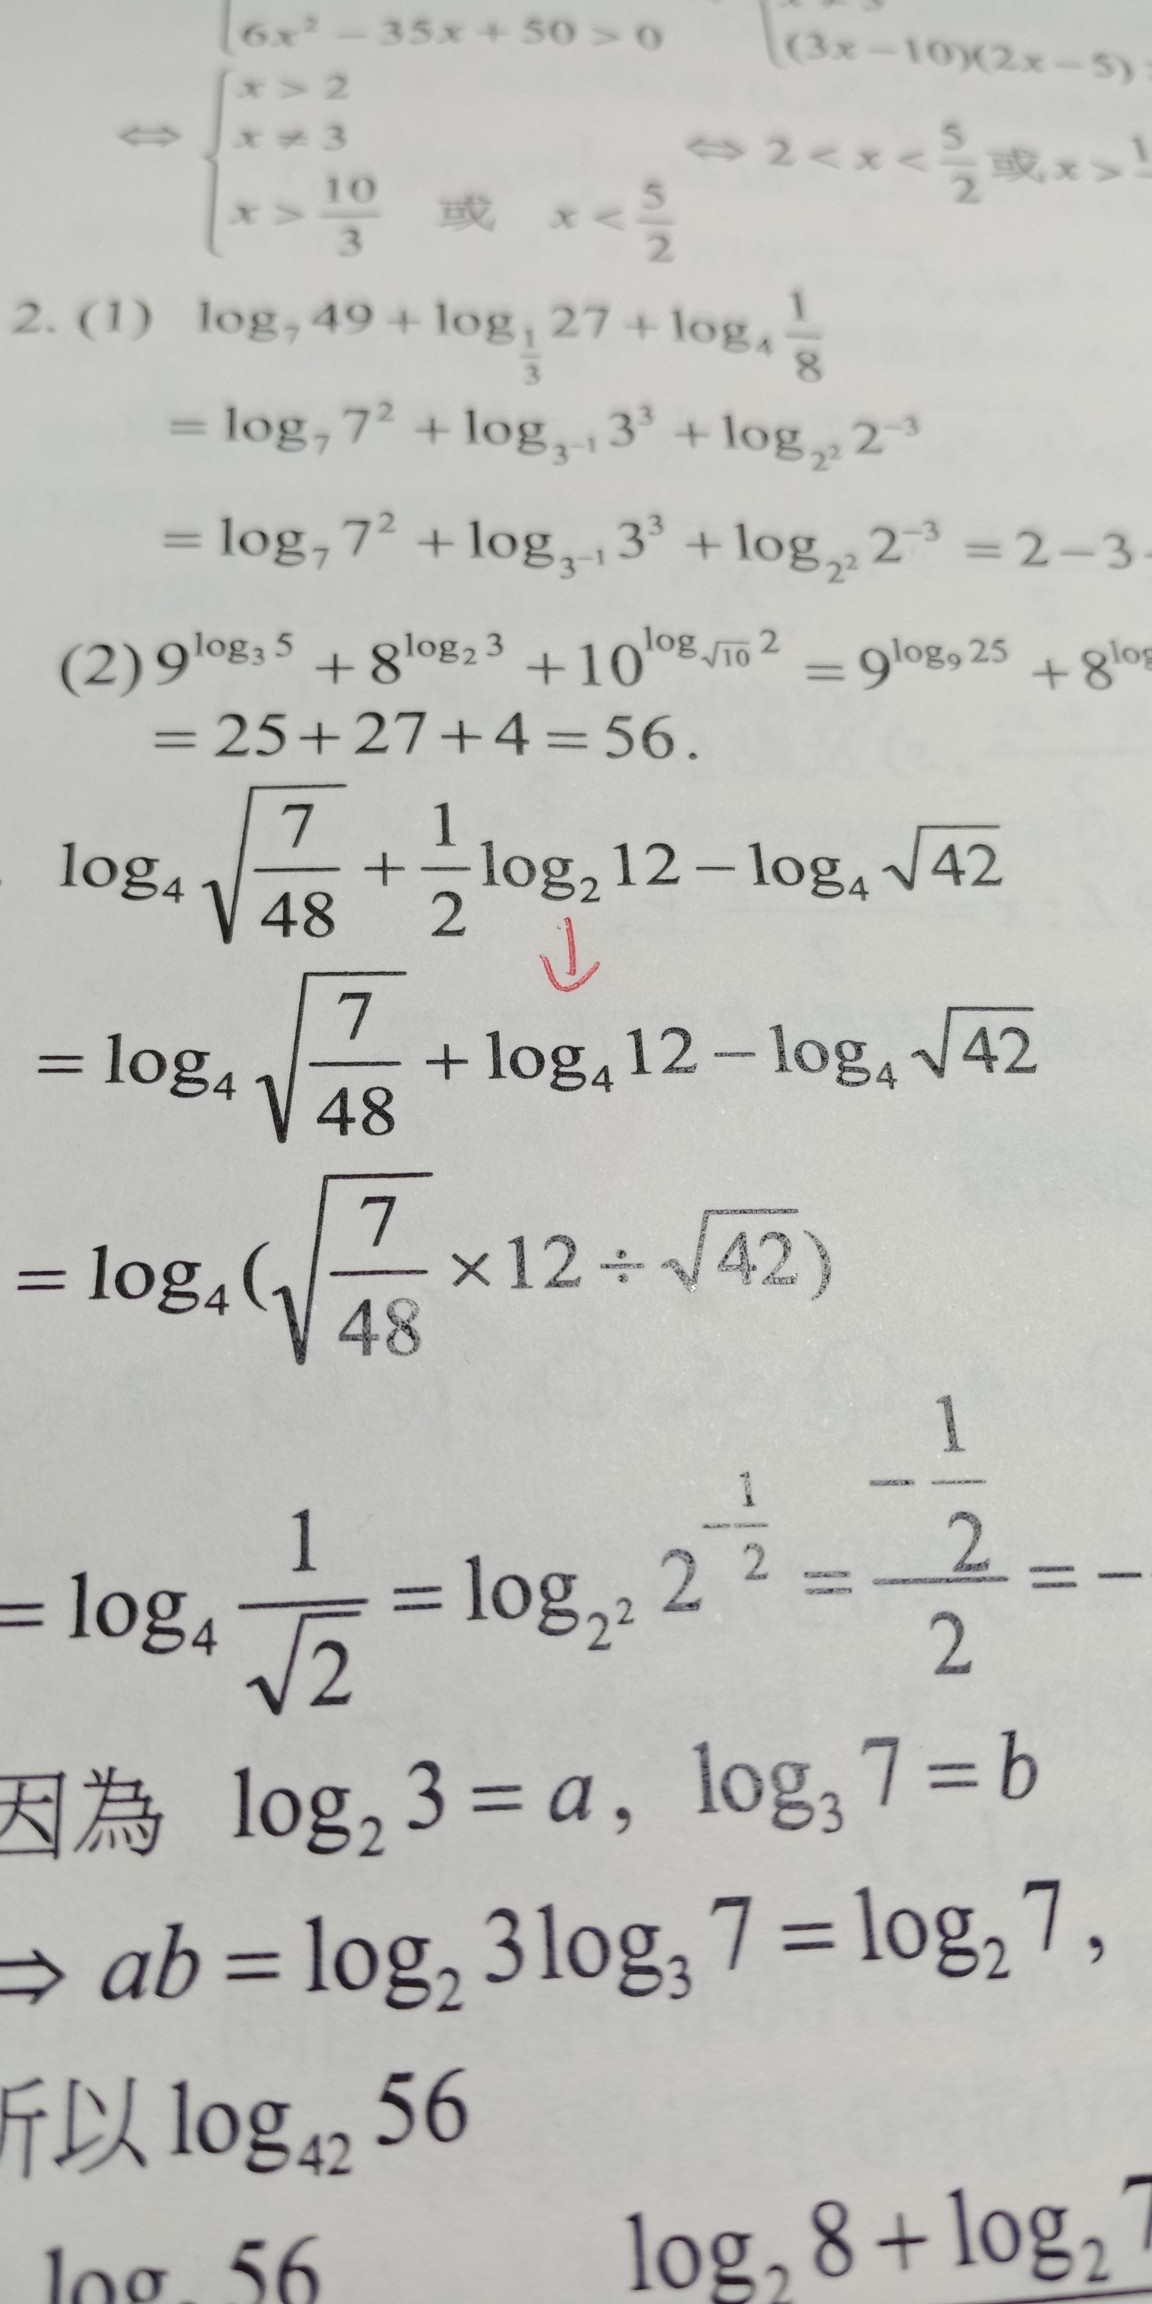 6x² − 35x + 50 > 0
(3x − 10)(2x − 5)
⇔ { x > 2
x ≠ 3 ⇔ 2 < x < 5/2 或 x >
x > 10/3 或 x < 5/2
2. (1) log₇ 49 + log_{1/3} 27 + log₄ 1/8
= log₇ 7² + log_{3⁻¹} 3³ + log_{2²} 2⁻³
= log₇ 7² + log_{3⁻¹} 3³ + log_{2²} 2⁻³ = 2 − 3
(2) 9^{log₃ 5} + 8^{log₂ 3} + 10^{log_{√10} 2} = 9^{log₉ 25} + 8^{log
= 25 + 27 + 4 = 56.
log₄ √(7/48) + 1/2 log₂ 12 − log₄ √42
↓
= log₄ √(7/48) + log₄ 12 − log₄ √42
= log₄ (√(7/48) × 12 ÷ √42)
= log₄ 1/√2 = log_{2²} 2^{−1/2} = (−1/2)/2 = −
因為 log₂ 3 = a, log₃ 7 = b
⇒ ab = log₂ 3 log₃ 7 = log₂ 7,
所以 log₄₂ 56
log 56 log₂ 8 + log₂ 7